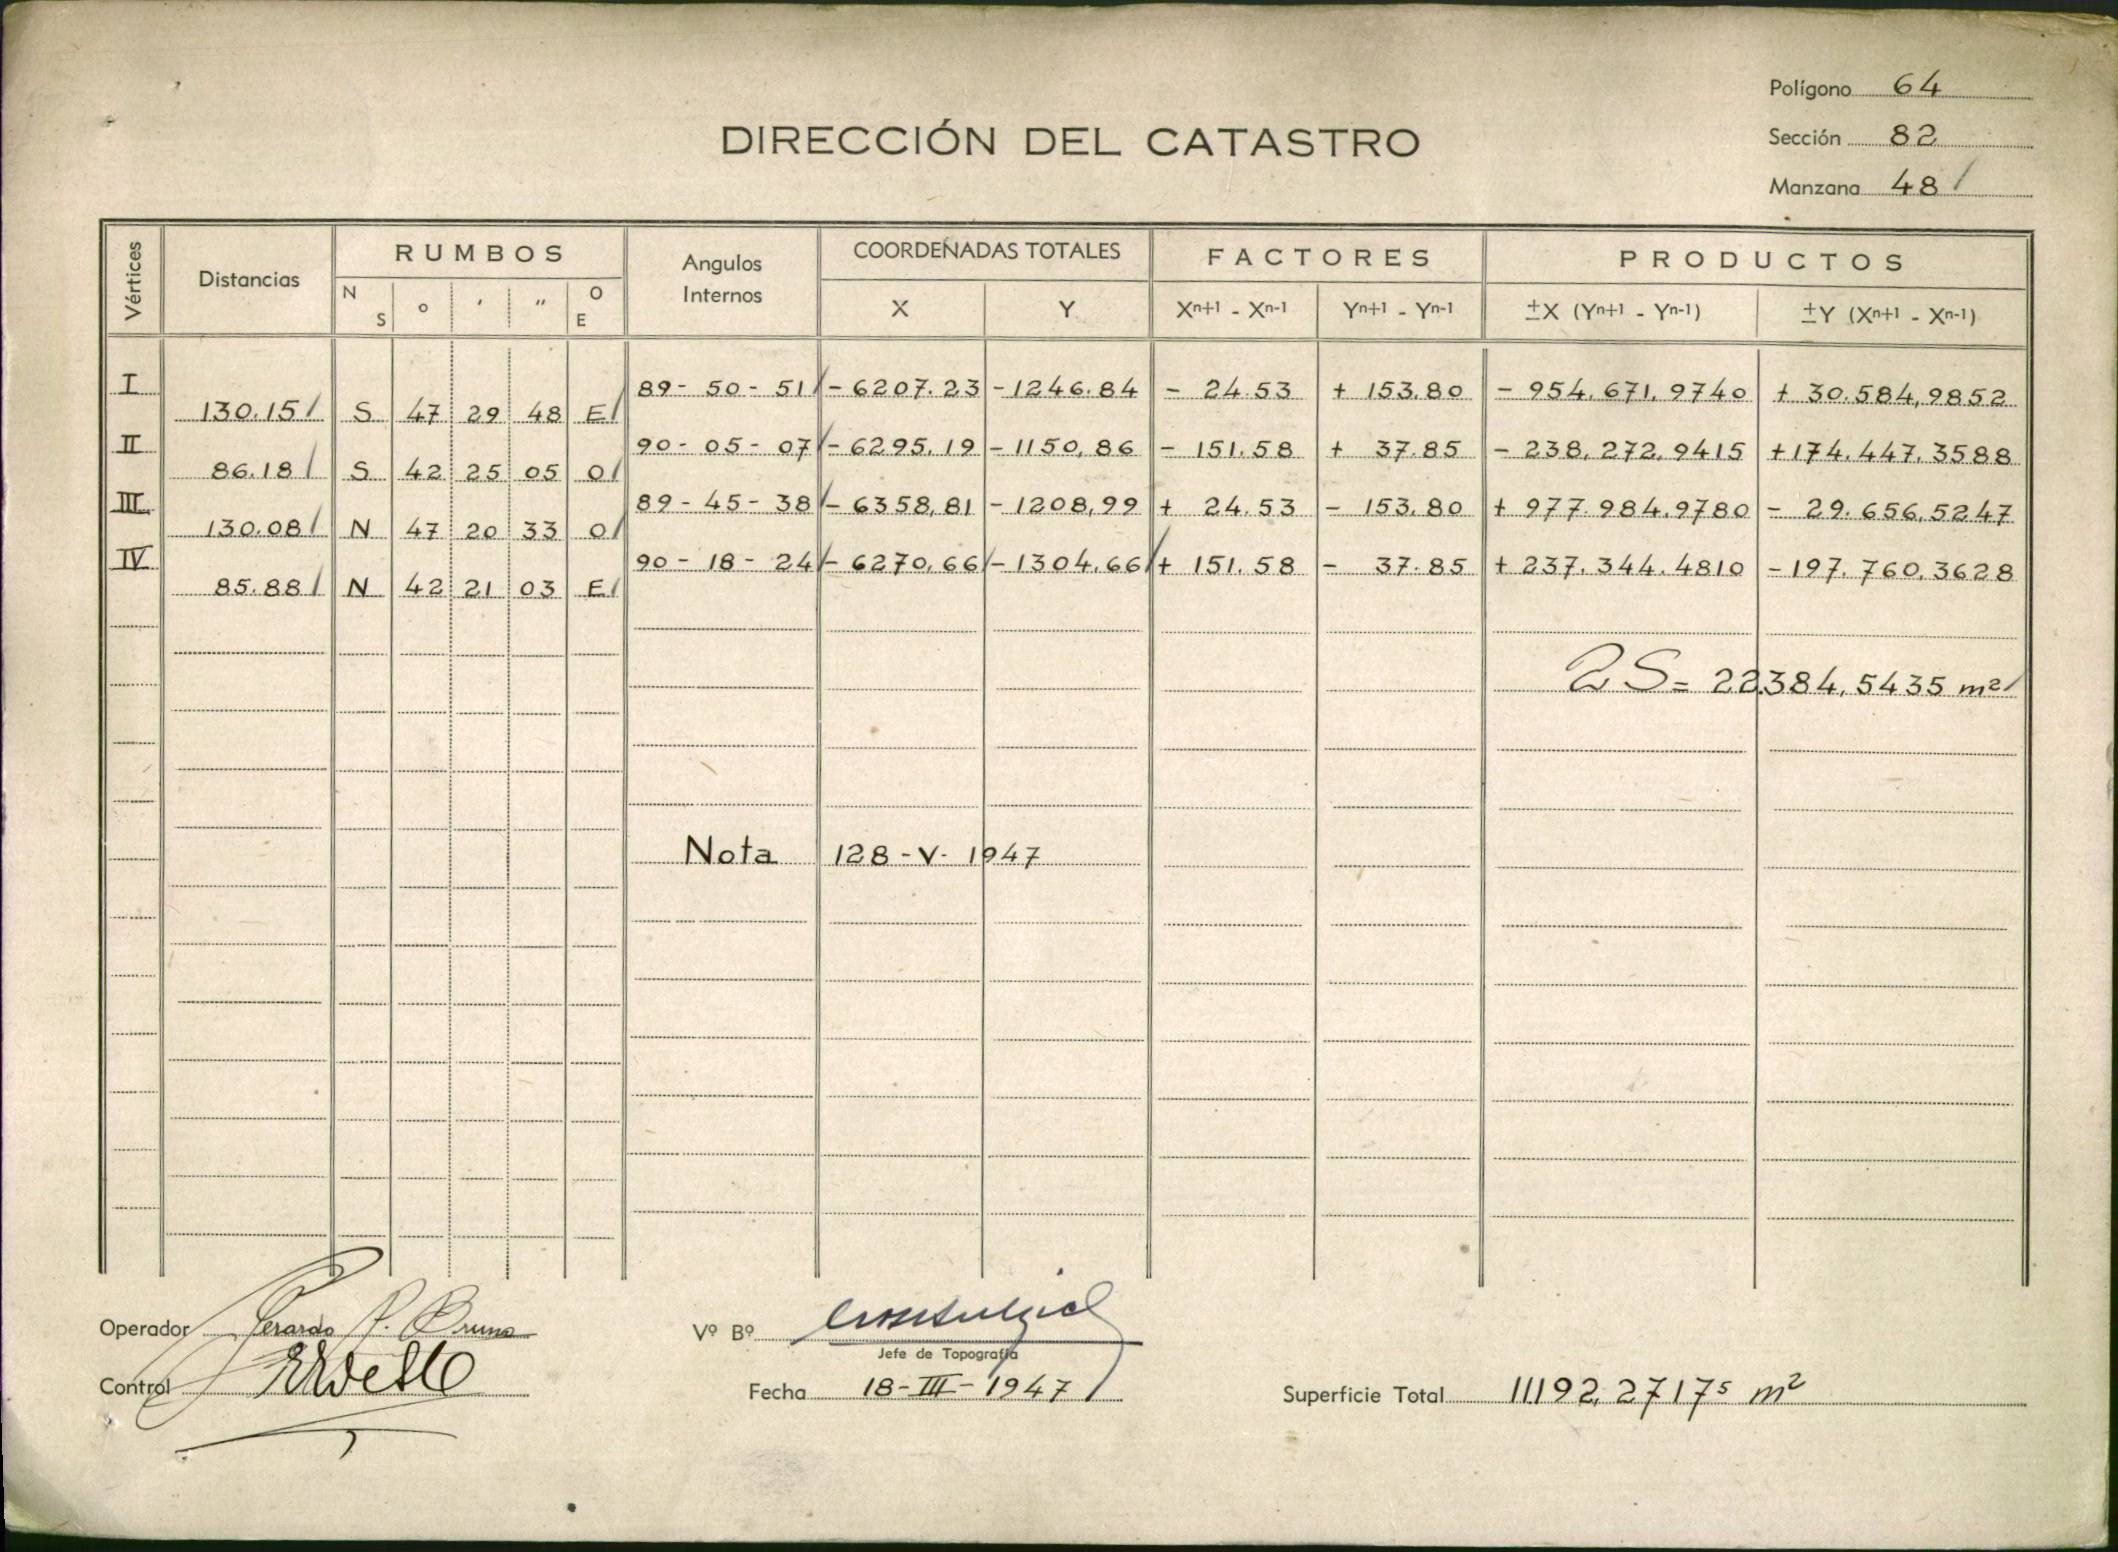 Polígono 64
DIRECCIÓN DEL CATASTRO
Sección 82
Manzana 48
Vértices Distancias RUMBOS N S ° ' " O E Angulos Internos COORDENADAS TOTALES X Y FACTORES Xn+1 - Xn-1 Yn+1 - Yn-1 PRODUCTOS ±X (Yn+1 - Yn-1) ±Y (Xn+1 - Xn-1)
I 89- 50- 51 - 6207.23 - 1246.84 - 24.53 + 153.80 - 954.671,9740 + 30.584,9852
130.15 S 47 29 48 E
II 90- 05- 07 - 6295.19 - 1150,86 - 151.58 + 37.85 - 238.272,9415 + 174.447,3588
86.18 S 42 25 05 O
III 89- 45- 38 - 6358,81 - 1208,99 + 24.53 - 153.80 + 977.984,9780 - 29.656,5247
130.08 N 47 20 33 O
IV 90- 18- 24 - 6270,66 - 1304,66 + 151.58 - 37.85 + 237.344.4810 - 197.760,3628
85.88 N 42 21 03 E
2S= 22384,5435 m²
Nota 128-V-1947
Operador Gerardo P. Bruno
Vº Bº
Jefe de Topografía
Control
Fecha 18-III-1947
Superficie Total 11192,2717⁵ m²